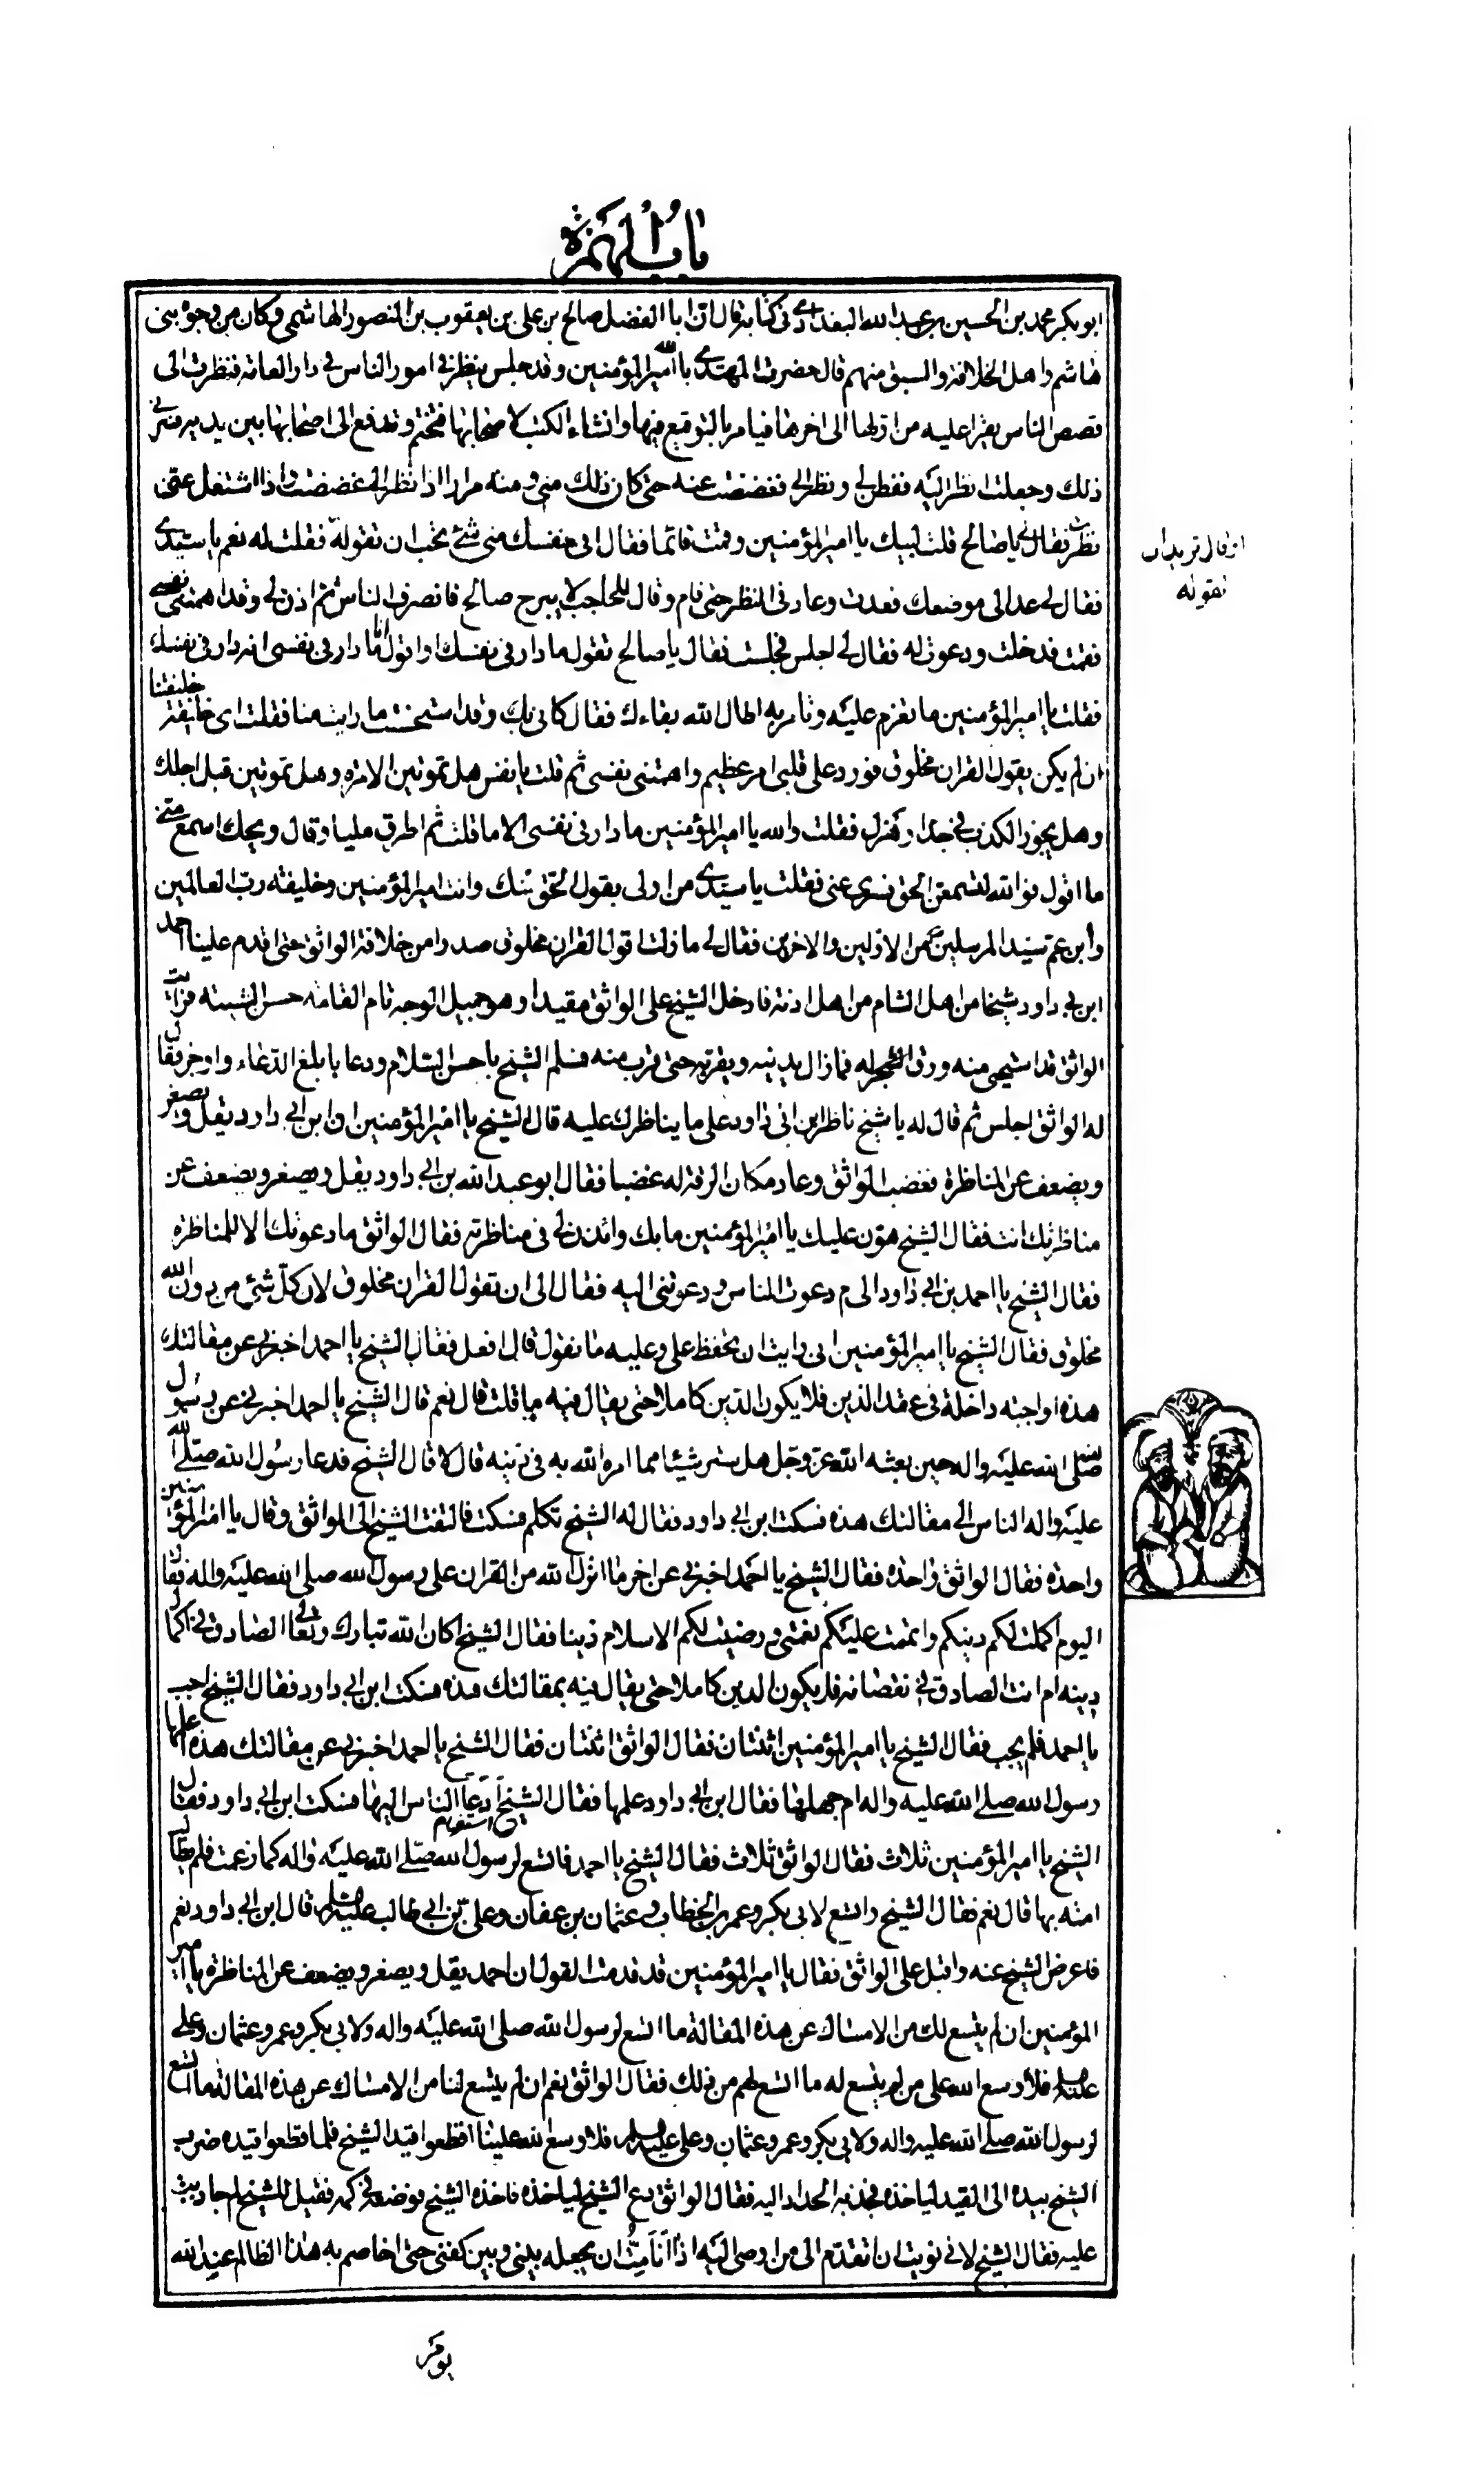 باب الهمزة
ابو بكر محمد بن الحسين بن عبد الله البغدادي في كتابه قال ان ابا الفضل صالح بن علي بن يعقوب بن المنصور الهاشمي وكان من وجوه بني
هاشم واهل الخلافة والسبق منهم قال حضرت المهتدي بالله امير المؤمنين وقد جلس ينظر في امور الناس في دار العامة فنظرت الى
قصص الناس يقرا عليه من اولها الى اخرها فيامر بالتوقيع فيها وانشاء الكتب لاصحابها فتختم وتدفع الى اصحابها بين يديه فسرني
ذلك وجعلت انظر اليه ففطن لي ونظر الي فغضضت عنه حتى كان ذلك مني ومنه مرارا اذا نظر الي غضضت واذا اشتغل عني
نظرت فقال لي يا صالح قلت لبيك يا امير المؤمنين وقمت قائما فقال افي نفسك مني شئ تحب ان تقوله فقلت له نعم يا سيدي
از قال تريد ان
تقوله
فقال لي عد الى موضعك فعدت وعاد في النظر حتى قام وقال للحاجب لا يبرح صالح فانصرف الناس ثم اذن لي وقد اهمتني نفسي
فقمت فدخلت ودعوت له فقال لي اجلس فجلست فقال يا صالح تقول ما دار في نفسك او اقول انا ما دار في نفسي انه دار في نفسك
فقلت يا امير المؤمنين ما تعزم عليه وتامر به اطال الله بقاءك فقال كاني بك وقد استحسنت ما رايته منا فقلت اي خليفة خليفتنا
ان لم يكن يقول القران مخلوق فورد على قلبي امر عظيم واهمتني نفسي ثم قلت يا نفس هل تموتين الا مرة وهل تموتين قبل اجلك
وهل يجوز الكذب في جد او هزل فقلت والله يا امير المؤمنين ما دار في نفسي الا ما قلت ثم اطرق مليا وقال ويحك اسمع مني
ما اقول فوالله لتسمعن الحق فسري عني فقلت يا سيدي من اولى بقول الحق منك وانت امير المؤمنين وخليفة رب العالمين
وابن عم سيد المرسلين من الاولين والاخرين فقال لي ما زلت اقول القران مخلوق صدرا من خلافة الواثق حتى اقدم علينا احمد
ابن ابي داود شيخا من اهل الشام من اهل اذنة فادخل الشيخ على الواثق مقيدا وهو جميل الوجه تام القامة حسن الشيبة فرايت
الواثق قد استحيى منه ورق له فما زال يدنيه ويقربه حتى قرب منه فسلم الشيخ باحسن السلام ودعا بابلغ الدعاء واوجز فقال
له الواثق اجلس ثم قال له يا شيخ ناظر ابن ابي داود على ما يناظرك عليه قال الشيخ يا امير المؤمنين ان ابن ابي داود يقل ويصغر
ويضعف عن المناظرة فغضب الواثق وعاد مكان الرقة له غضبا فقال ابو عبد الله بن ابي داود يقل ويصغر ويضعف عن
مناظرتك انت فقال الشيخ هون عليك يا امير المؤمنين ما بك وائذن لي في مناظرته فقال الواثق ما دعوتك الا للمناظرة
فقال الشيخ يا احمد بن ابي داود الى م دعوت الناس ودعوتني اليه فقال الى ان تقول القران مخلوق لان كل شئ من دون الله
مخلوق فقال الشيخ يا امير المؤمنين ان رايت ان تحفظ علي وعليه ما نقول قال افعل فقال الشيخ يا احمد اخبرني عن مقالتك
هذه اواجبة داخلة في عقد الدين فلا يكون الدين كاملا حتى يقال فيه بما قلت قال نعم قال الشيخ يا احمد اخبرني عن رسول الله
صلى الله عليه واله حين بعثه الله عز وجل هل ستر شيئا مما امره الله به في دينه قال لا قال الشيخ فدعا رسول الله صلى الله
عليه واله الناس الى مقالتك هذه فسكت ابن ابي داود فقال له الشيخ تكلم فسكت فالتفت الشيخ الى الواثق وقال يا امير المؤمنين
واحدة فقال الواثق واحدة فقال الشيخ يا احمد اخبرني عن اخر ما انزل الله من القران على رسول الله صلى الله عليه واله فقال
اليوم اكملت لكم دينكم واتممت عليكم نعمتي ورضيت لكم الاسلام دينا فقال الشيخ اكان الله تبارك وتعالى الصادق في اكمال
دينه ام انت الصادق في نقصانه فلا يكون الدين كاملا حتى يقال فيه بمقالتك هذه فسكت ابن ابي داود فقال الشيخ اجب
يا احمد فلم يجب فقال الشيخ يا امير المؤمنين اثنتان فقال الواثق اثنتان فقال الشيخ يا احمد اخبرني عن مقالتك هذه اعلمها
رسول الله صلى الله عليه واله ام جهلها فقال ابن ابي داود علمها فقال الشيخ ادعا الناس اليها فسكت ابن ابي داود فقال
استفهام
الشيخ يا امير المؤمنين ثلاث فقال الواثق ثلاث فقال الشيخ يا احمد فاتسع لرسول الله صلى الله عليه واله كما زعمت فلم يطالب
امته بها قال نعم فقال الشيخ واتسع لابي بكر وعمر بن الخطاب وعثمان بن عفان وعلي بن ابي طالب عليه السلام قال ابن ابي داود نعم
فاعرض الشيخ عنه واقبل على الواثق فقال يا امير المؤمنين قد قدمت القول ان احمد يقل ويصغر ويضعف عن المناظرة يا امير
المؤمنين ان لم يتسع لك من الامساك عن هذه المقالة ما اتسع لرسول الله صلى الله عليه واله ولابي بكر وعمر وعثمان وعلي
عليه السلام فلا وسع الله على من لم يتسع له ما اتسع لهم من ذلك فقال الواثق نعم ان لم يتسع لنا من الامساك عن هذه المقالة ما اتسع
لرسول الله صلى الله عليه واله ولابي بكر وعمر وعثمان وعلي عليه السلام فلا وسع الله علينا اقطعوا قيد الشيخ فلما قطعوا قيده ضرب
الشيخ بيده الى القيد لياخذه فجذبه الحداد اليه فقال الواثق دع الشيخ لياخذه فاخذه الشيخ فوضعه في كمه فقيل للشيخ لم جاذبت
عليه فقال الشيخ لاني نويت ان اتقدم الى من اوصي اليه اذا انا مت ان يجعله بيني وبين كفني حتى اخاصم به هذا الظالم عند الله
يوم